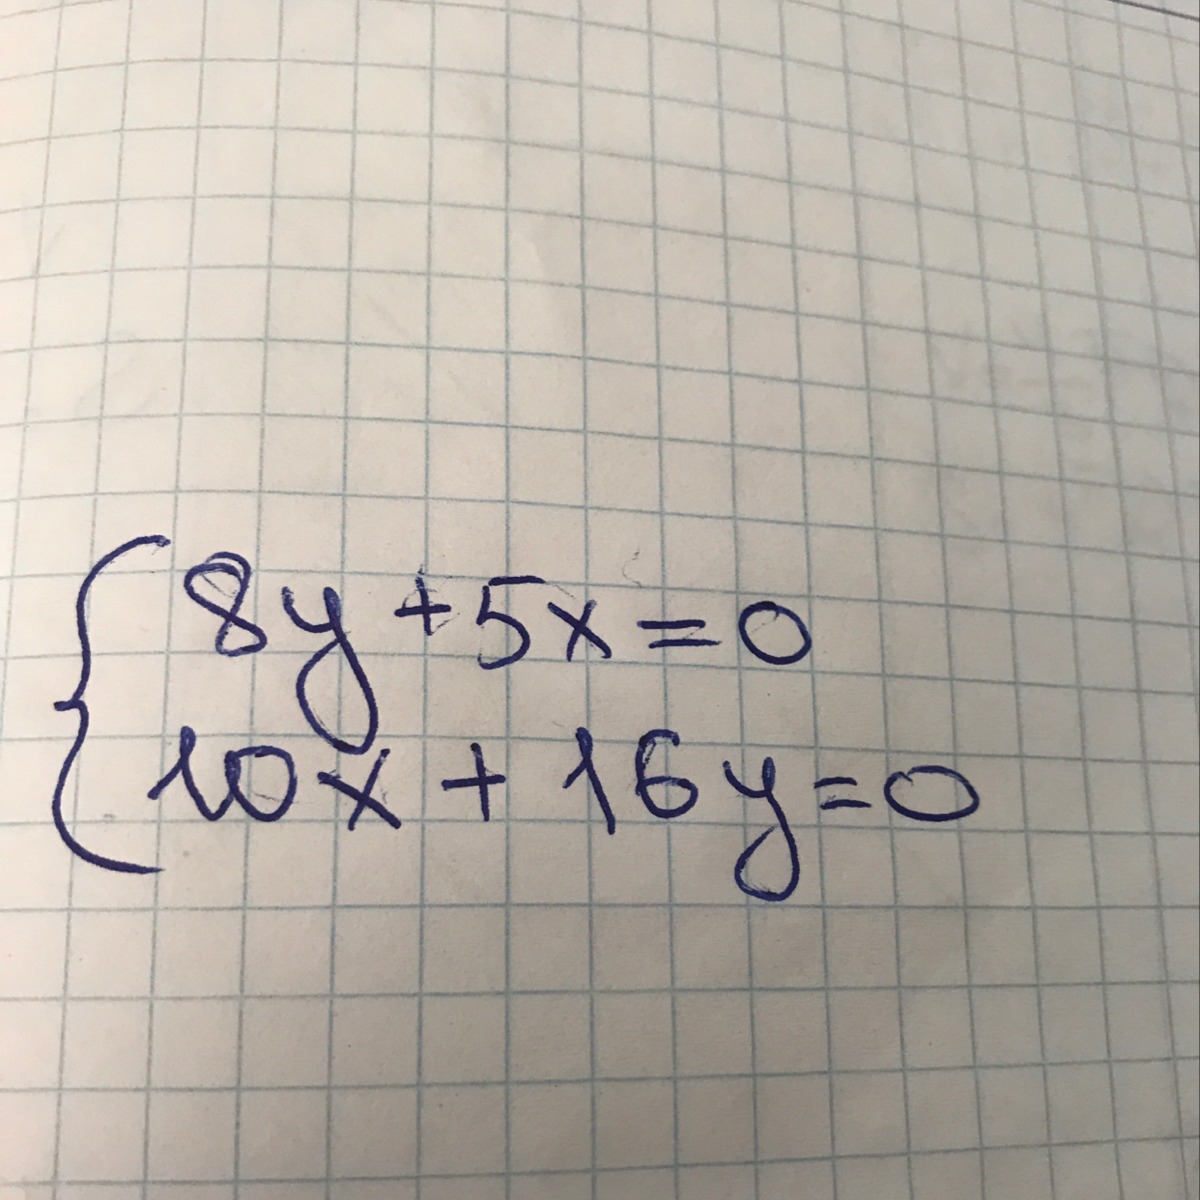 8y + 5x = 0
10x + 16y = 0